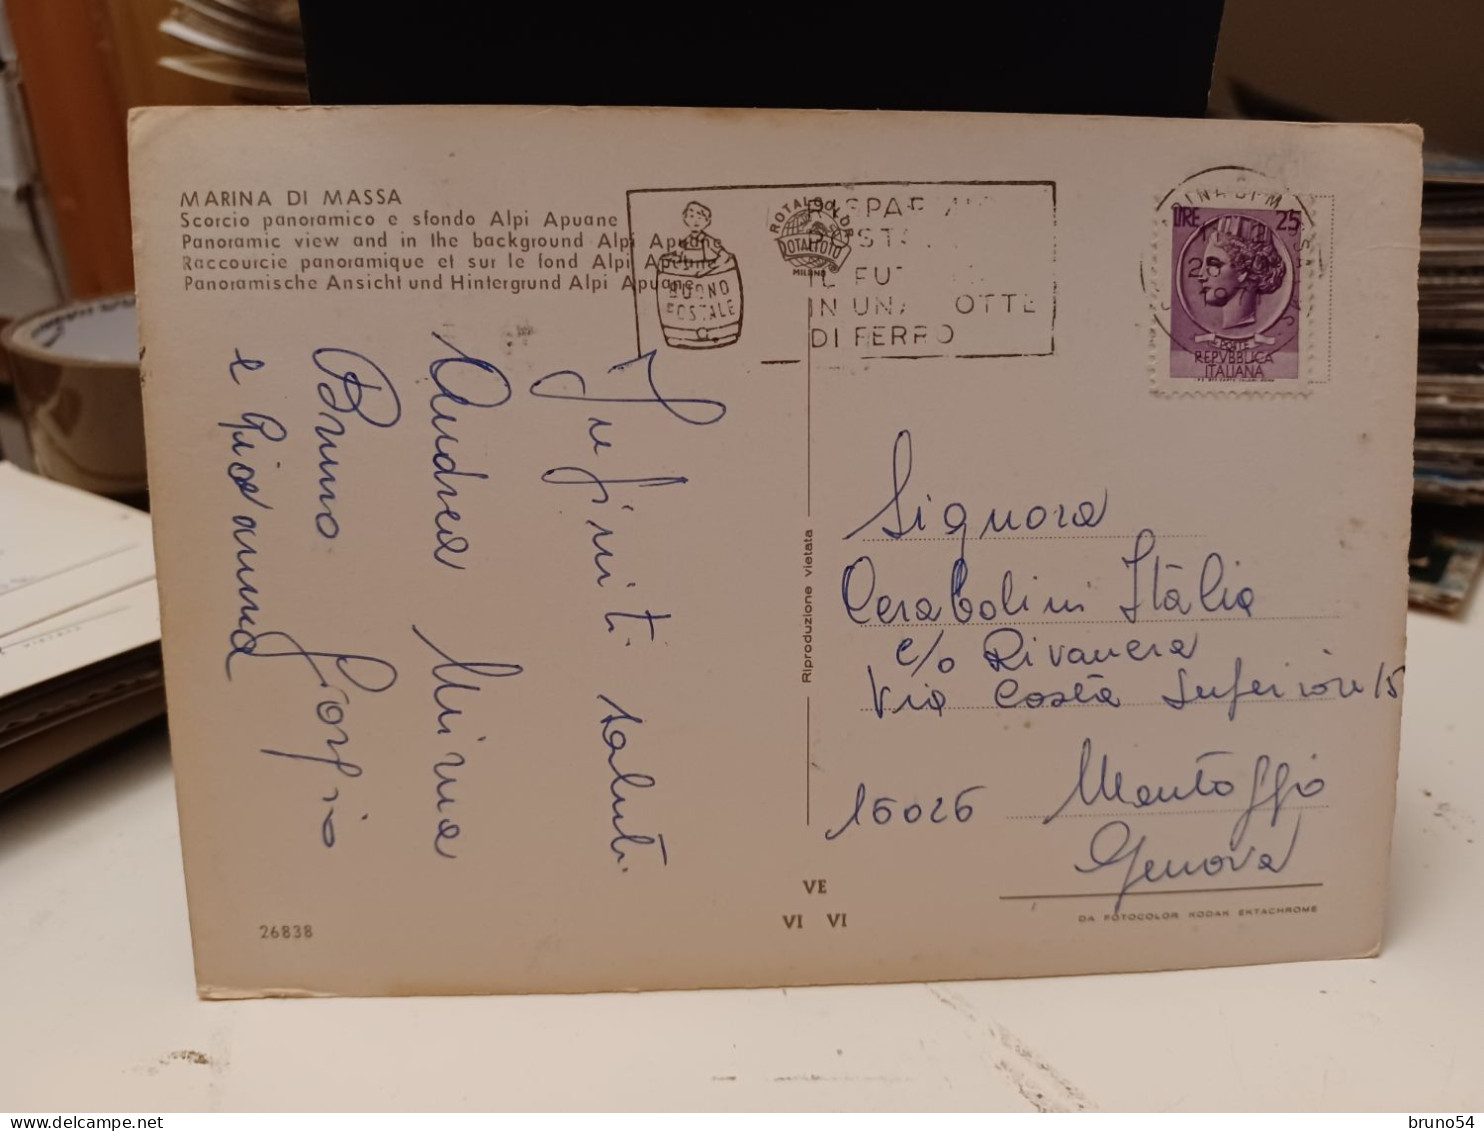 MARINA DI MASSA
Scorcio panoramico e sfondo Alpi Apuane
Panoramic view and in the background Alpi Apuane
Raccourcie panoramique et sur le fond Alpi Apuane
Panoramische Ansicht und Hintergrund Alpi Apuane
BUONO
POSTALE
ROTALCOLOR
ROTALFOTO
MILANO
IL
IN UNA
DI FERRO
LIRE 25
POSTE
REPVBBLICA
ITALIANA
Infiniti saluti
Andrea Mirna
Bruno Giorgio
e Giovanna
Riproduzione vietata
Signora
Cerabolini Itália
c/o Rivanera
Via Costa Superiore 15
16026 Montoggio
Genova
VE
VI VI
26838
DA FOTOCOLOR KODAK EKTACHROME
delcampe.net
bruno54